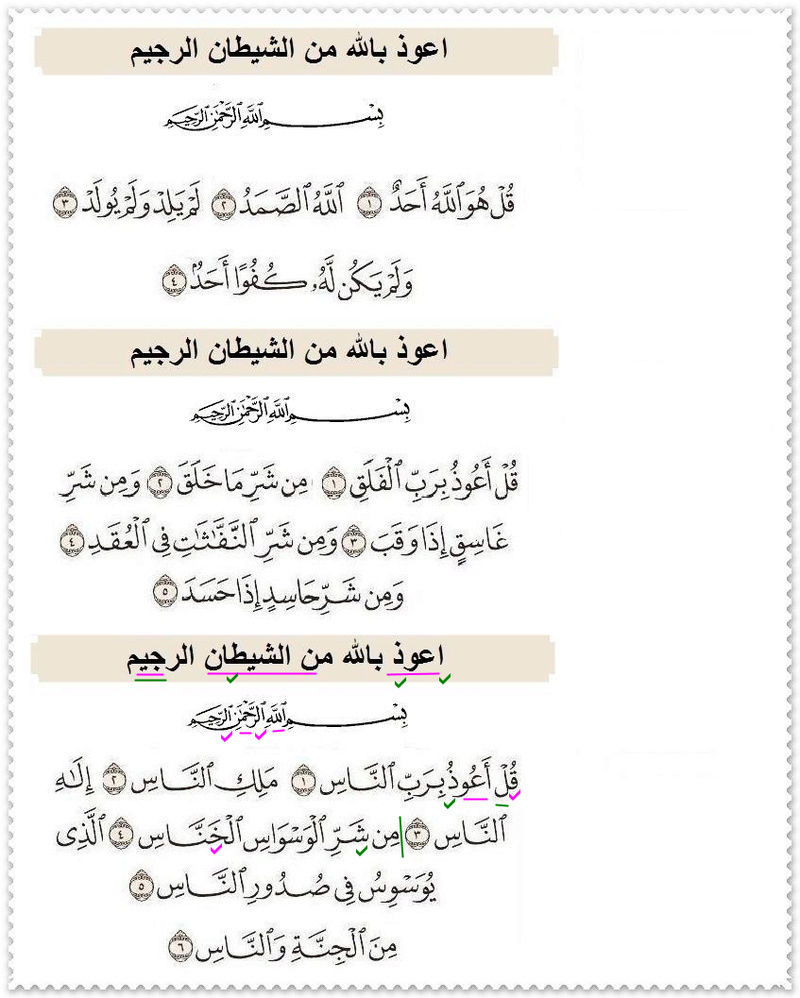 اعوذ بالله من الشيطان الرجيم
بِسْمِ ٱللَّهِ ٱلرَّحْمَٰنِ ٱلرَّحِيمِ
قُلْ هُوَ ٱللَّهُ أَحَدٌ ١ ٱللَّهُ ٱلصَّمَدُ ٢ لَمْ يَلِدْ وَلَمْ يُولَدْ ٣
وَلَمْ يَكُن لَّهُۥ كُفُوًا أَحَدٌۢ ٤
اعوذ بالله من الشيطان الرجيم
بِسْمِ ٱللَّهِ ٱلرَّحْمَٰنِ ٱلرَّحِيمِ
قُلْ أَعُوذُ بِرَبِّ ٱلْفَلَقِ ١ مِن شَرِّ مَا خَلَقَ ٢ وَمِن شَرِّ
غَاسِقٍ إِذَا وَقَبَ ٣ وَمِن شَرِّ ٱلنَّفَّٰثَٰتِ فِى ٱلْعُقَدِ ٤
وَمِن شَرِّ حَاسِدٍ إِذَا حَسَدَ ٥
اعوذ بالله من الشيطان الرجيم
بِسْمِ ٱللَّهِ ٱلرَّحْمَٰنِ ٱلرَّحِيمِ
قُلْ أَعُوذُ بِرَبِّ ٱلنَّاسِ ١ مَلِكِ ٱلنَّاسِ ٢ إِلَٰهِ
ٱلنَّاسِ ٣ مِن شَرِّ ٱلْوَسْوَاسِ ٱلْخَنَّاسِ ٤ ٱلَّذِى
يُوَسْوِسُ فِى صُدُورِ ٱلنَّاسِ ٥
مِنَ ٱلْجِنَّةِ وَٱلنَّاسِ ٦